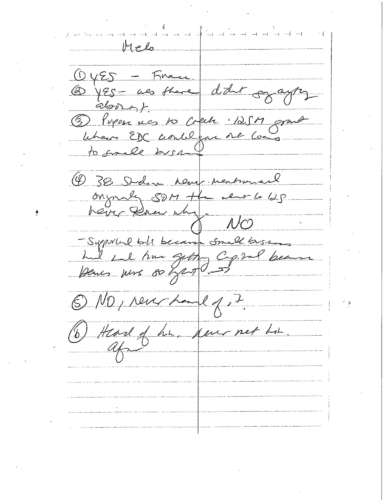 Melo
① YES - Finance
② YES - was there didn't say anything
about it.
③ Purpose was to create 125M grant
where EDC would give out loans
to small business
④ 38 Studios never mentioned
originally 50M then went to 125
never knew why.
NO
- Supported bill because small business
had hard time getting capital because
banks were so tight →
⑤ NO, never heard of it.
⑥ Head of him. never met him.